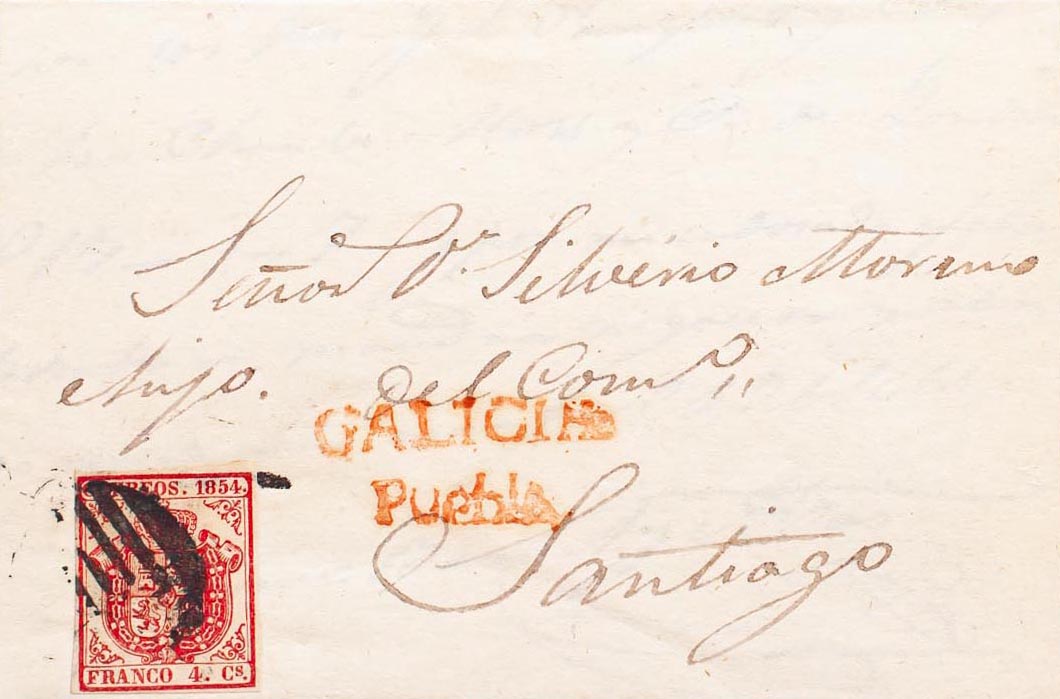 Señor Dn. Silverio Moreno
Hijo. del Como.
GALICIA
Puebla
Santiago
CORREOS. 1854.
FRANCO 4. Cs.